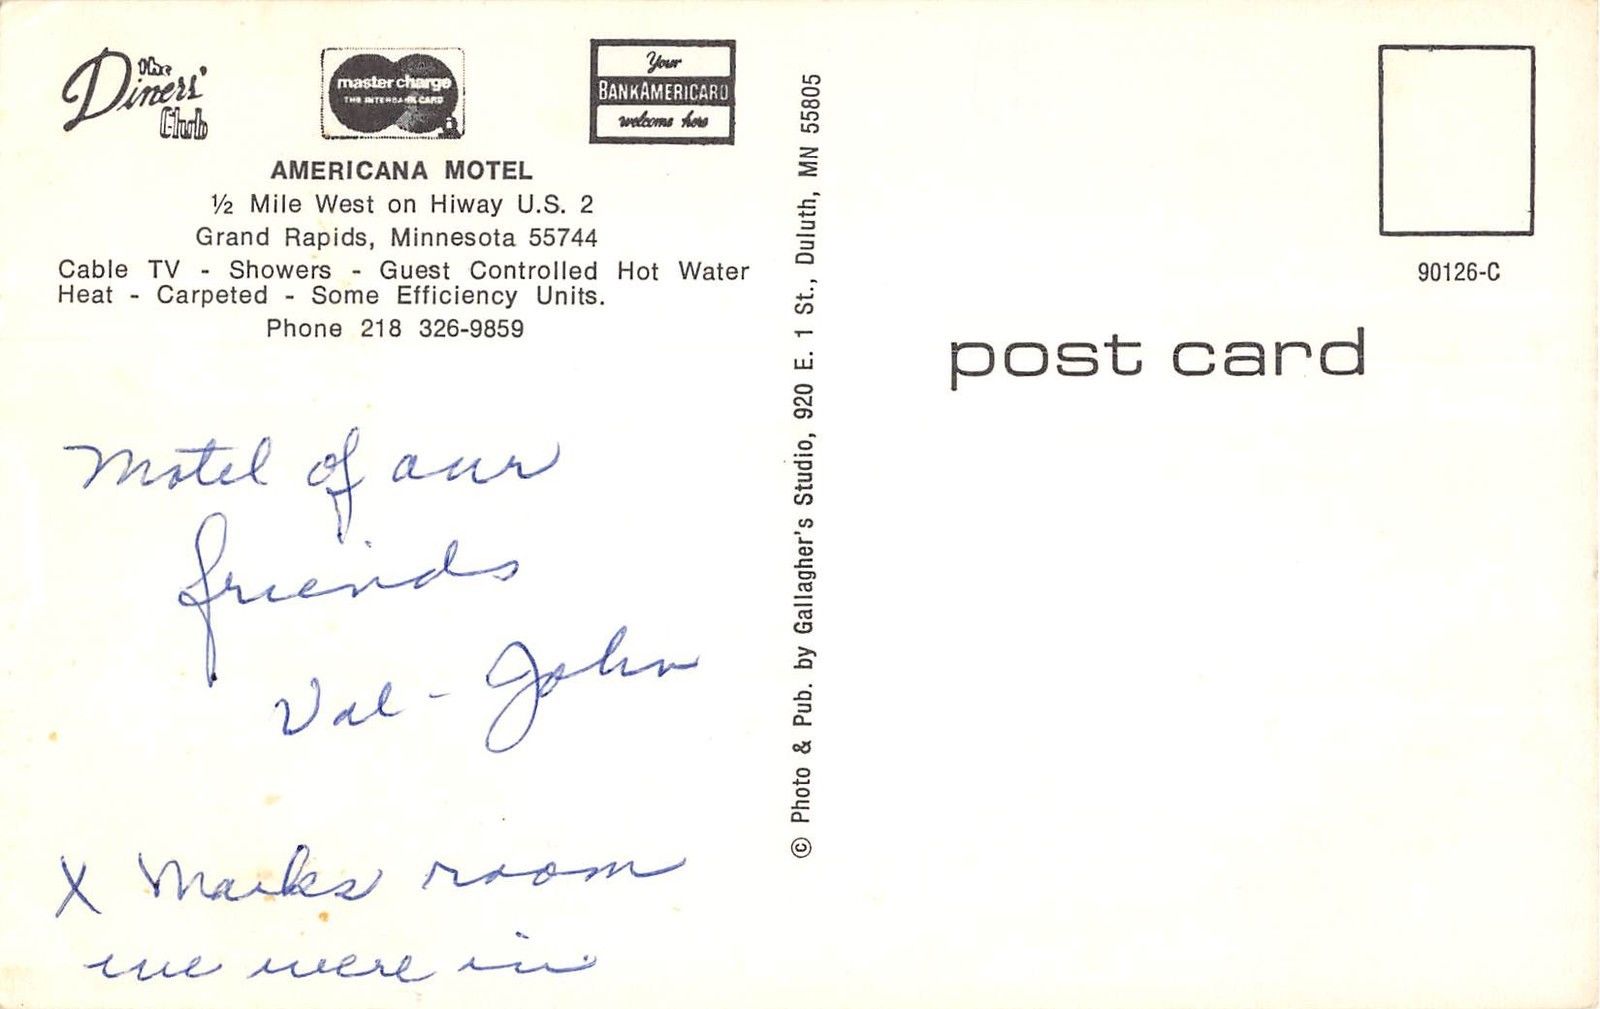 the
Diners'
Club
master charge
THE INTERBANK CARD
Your
BANKAMERICARD
welcome here
AMERICANA MOTEL
½ Mile West on Hiway U.S. 2
Grand Rapids, Minnesota 55744
Cable TV - Showers - Guest Controlled Hot Water
Heat - Carpeted - Some Efficiency Units.
Phone 218 326-9859
Motel of our
friends
Val - John
X Marks room
we were in
© Photo & Pub. by Gallagher's Studio, 920 E. 1 St., Duluth, MN 55805
90126-C
post card